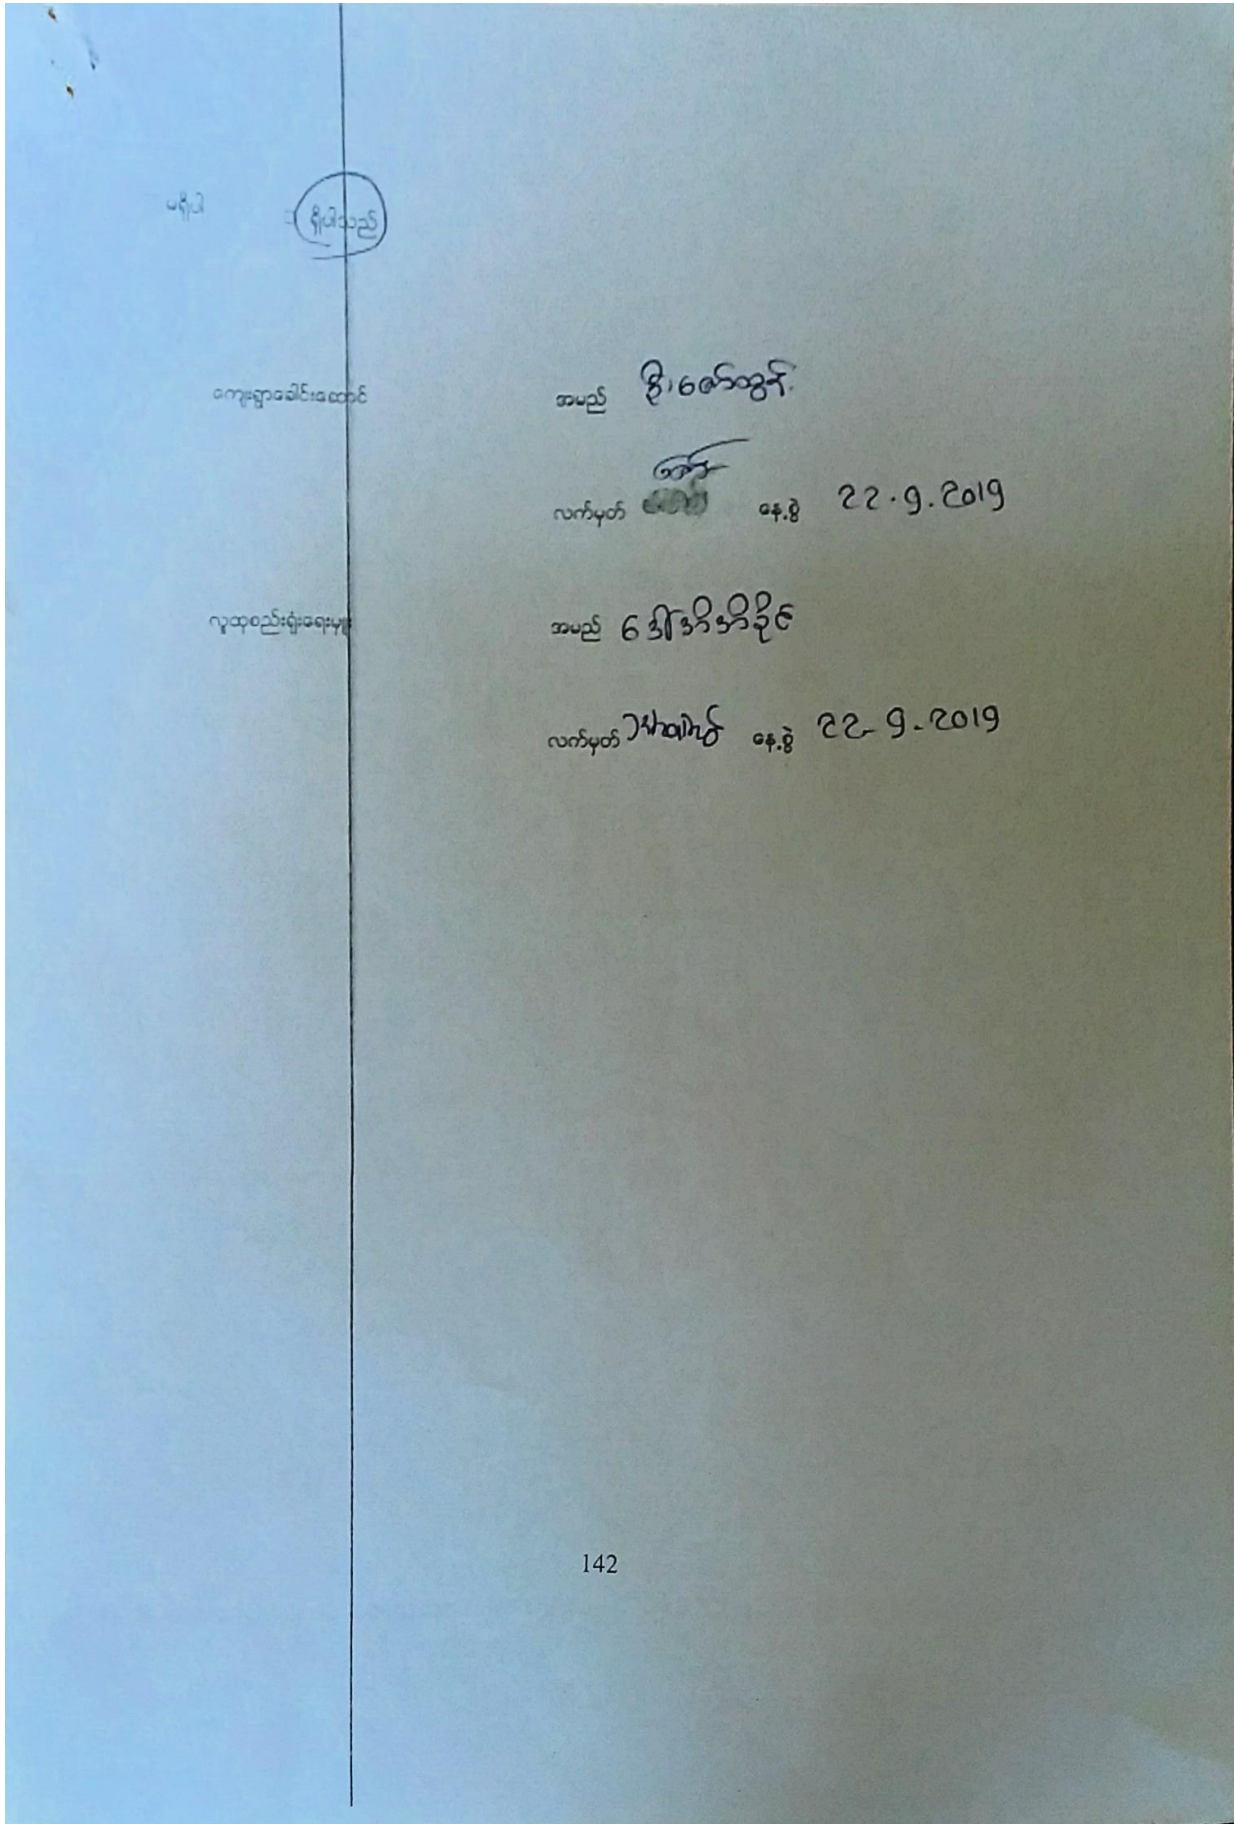 မရှိပါ ရှိပါသည်
ကျေးရွာခေါင်းဆောင် အမည် ဦးဇော်ထွန်း
လက်မှတ် နေ့စွဲ 22.9.2019
လူထုစည်းရုံးရေးမှူး အမည် ဒေါ်အိအိခိုင်
လက်မှတ် နေ့စွဲ 22-9-2019
142